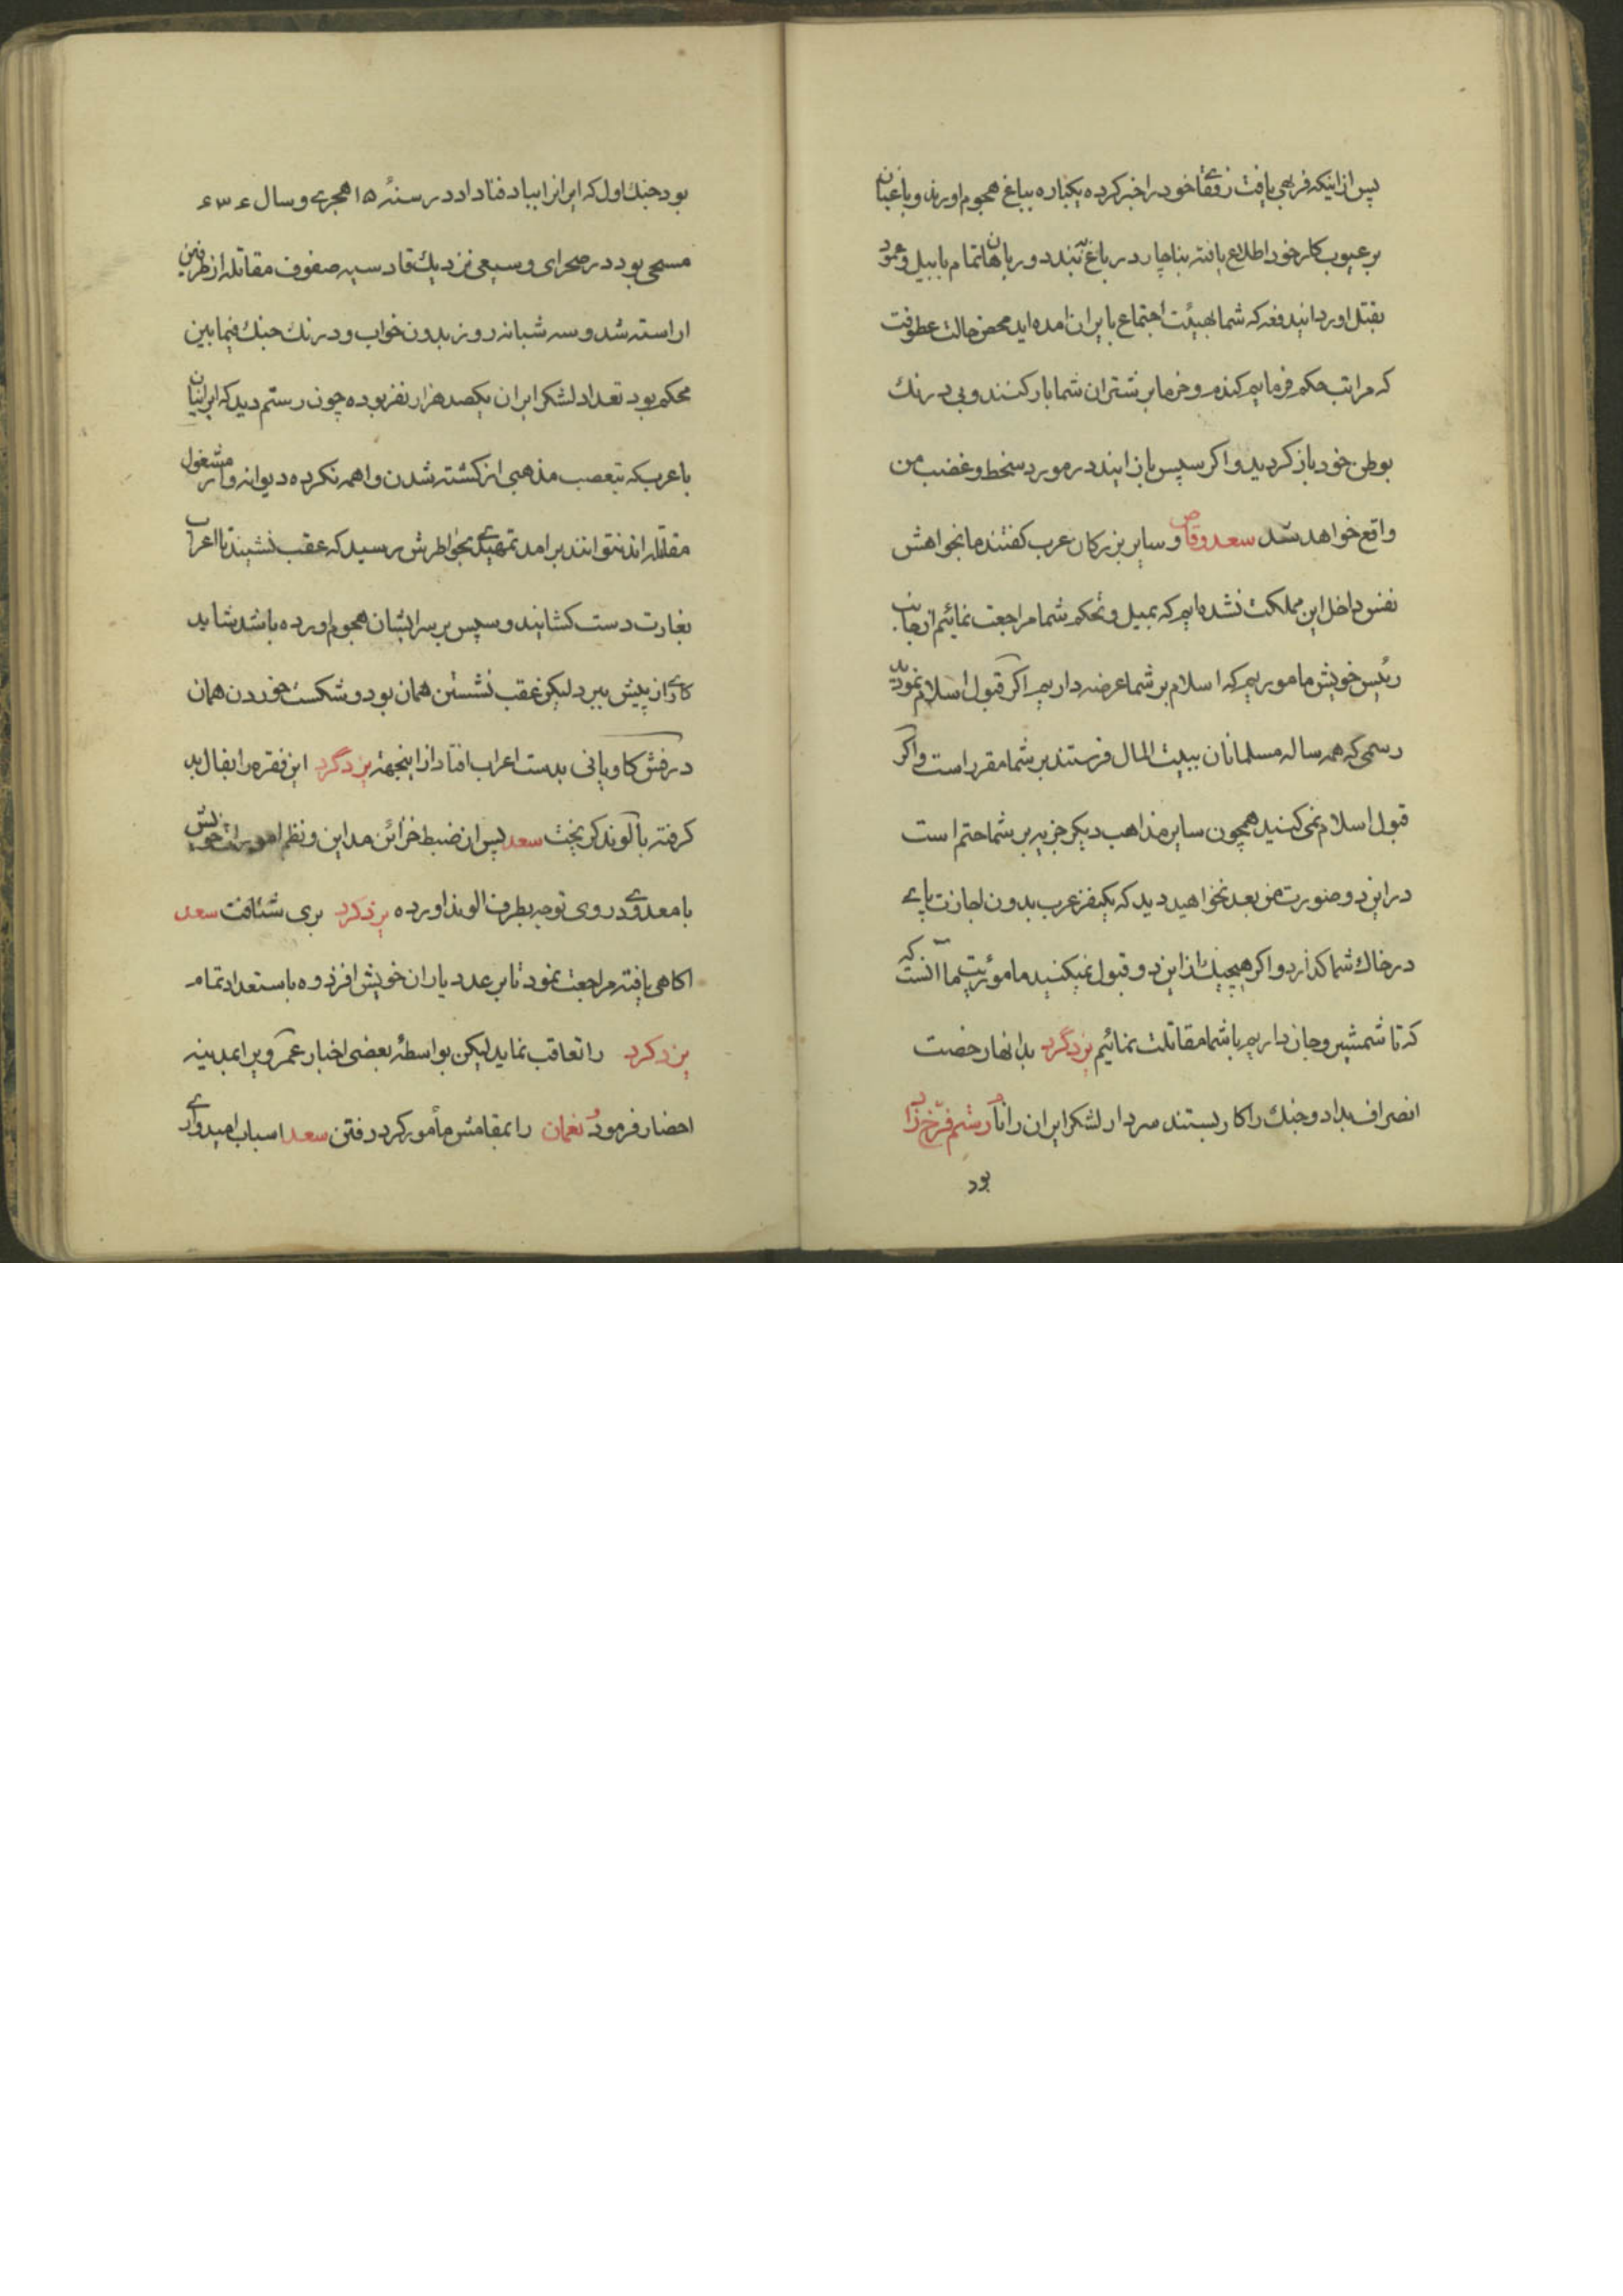 پس از اینکه فربهی یافت رفقاء خود را خبر کرده یکباره بباغ هجوم اورند و باغبان
بر عیوب کار خود اطلاع یافته بناچار در باغ بندد و رباهان تمام با بیل و عمود
بقتل اورد ایندفعه که شما بهیئت اجتماع بایران امده اید محض حالت عطوفت
که مراتب حکم فرمایم کندم و خرما بر شتران شما بار کنند و بی درنك
بوطن خود باز کردید و اکر سپس باز ایند در مورد سخط و غضب من
واقع خواهد شد سعد وقاص و سایر بزرکان عرب کفتند ما بخواهش
نفس داخل این مملکت نشده ایم که بمیل و تحکم شما مراجعت نمائیم از جانب
رئیس خویش ماموریم که اسلام بر شما عرضه داریم اکر قبول اسلام نمودید
رسمی که همه ساله مسلمانان ببیت المال فرستند بر شما مقرر است و اکر
قبول اسلام نمی کنید همچون سایر مذاهب دیکر جزیه بر شما حتم است
در این دو صورت من بعد نخواهید دید که یکنفر عرب بدون اجازت پای
در خاك شما کذارد و اکر هیچیك از این دو قبول نمیکنید ماموریت ما آنست که
که تا شمشیر و جان داریم با شما مقاتلت نمائیم یزدگرد بدانها رخصت
انصراف بداد و جنك را کار بستند سردار لشکر ایران را نام رستم فرخ زاد
بود
بود جنك اول که ایران را بباد فنا داد در سنهٔ ۱۵ هجری و سال ۶۳۶
مسیحی بود در صحرای وسیعی نزدیك قادسیه صفوف مقاتله از طرفین
اراسته شد و سه شبانه روز بدون خواب و درنك جنك فیمابین
محکم بود تعداد لشکر ایران یکصد هزار نفر بوده چون رستم دید که ایرانیان
با عرب که بتعصب مذهبی از کشته شدن واهمه نکرده دیوانه وار مشغول
مقاتله اند نتوانند برامد تمهیدی بخواطرش رسید که عقب نشیند تا اعراب
بغارت دست کشایند و سپس بر سر ایشان هجوم اورده باشد شاید
کاری از پیش ببرد لیکن عقب نشستن همان بود و شکست خوردن همان
درفش کاویانی بدست اعراب افتاد از اینجهة یزدگرد این فقره را بفال بد
کرفته با لوند کریخت سعد پس از ضبط خزائن مداین و نظم امورات خویش
با معدودی روی توجه بطرف الوند اورده یزدکرد بری شتافت سعد
اکاهی یافته مراجعت نمود تا بر عدد یاران خویش افزوده باستعداد تمام
یزدکرد را تعاقب نماید لیکن بواسطهٔ بعضی اخبار عمر ویرا بمدینه
احضار فرمود نعمان را بمقامش مأمور کرد رفتن سعد اسباب امیدواری